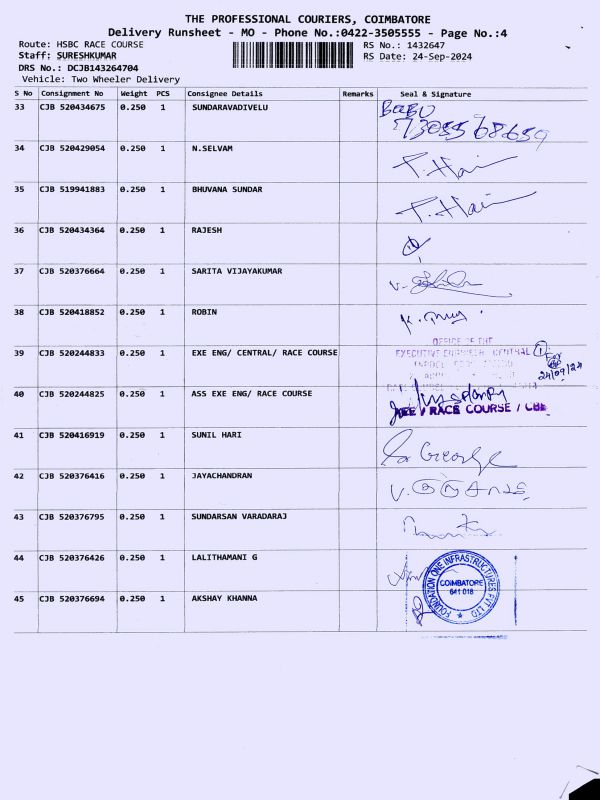 THE PROFESSIONAL COURIERS, COIMBATORE
Delivery Runsheet - MO - Phone No.:0422-3505555 - Page No.:4
Route: HSBC RACE COURSE
RS No.: 1432647
Staff: SURESHKUMAR
RS Date: 24-Sep-2024
DRS No.: DCJB143264704
Vehicle: Two Wheeler Delivery
S No Consignment No Weight PCS Consignee Details Remarks Seal & Signature
33 CJB 520434675 0.250 1 SUNDARAVADIVELU BABU
34 CJB 520429054 0.250 1 N.SELVAM
35 CJB 519941883 0.250 1 BHUVANA SUNDAR
36 CJB 520434364 0.250 1 RAJESH
37 CJB 520376664 0.250 1 SARITA VIJAYAKUMAR
38 CJB 520418852 0.250 1 ROBIN
OFFICE OF THE
39 CJB 520244833 0.250 1 EXE ENG/ CENTRAL/ RACE COURSE EXECUTIVE ENGINEER CENTRAL
24/09/24
40 CJB 520244825 0.250 1 ASS EXE ENG/ RACE COURSE
AEE / RACE COURSE / CBE
41 CJB 520416919 0.250 1 SUNIL HARI George
42 CJB 520376416 0.250 1 JAYACHANDRAN
43 CJB 520376795 0.250 1 SUNDARSAN VARADARAJ
44 CJB 520376426 0.250 1 LALITHAMANI G
FOUNDATION ONE INFRASTRUCTURES PVT LTD
COIMBATORE
641 018
45 CJB 520376694 0.250 1 AKSHAY KHANNA